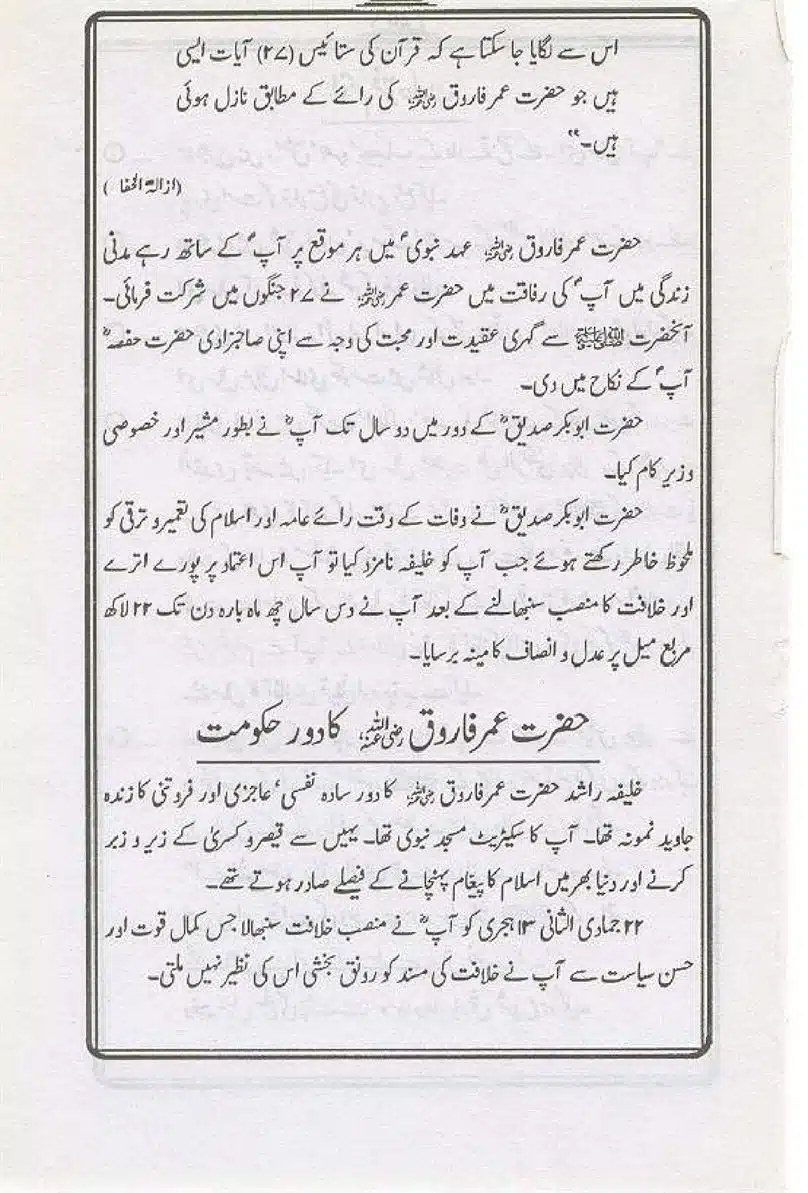 اس سے لگایا جا سکتا ہے کہ قرآن کی ستائیس (۲۷) آیات ایسی
ہیں جو حضرت عمر فاروق رضی اللہ عنہ کی رائے کے مطابق نازل ہوئی
ہیں۔"
(ازالۃ الخفا)
حضرت عمر فاروق رضی اللہ عنہ عہد نبوی ؐ میں ہر موقع پر آپ ؐ کے ساتھ رہے مدنی
زندگی میں آپ ؐ کی رفاقت میں حضرت عمر رضی اللہ عنہ نے ۲۷ جنگوں میں شرکت فرمائی۔
آنحضرت صلی اللہ علیہ وسلم سے گہری عقیدت اور محبت کی وجہ سے اپنی صاحبزادی حضرت حفصہ ؓ
آپ ؐ کے نکاح میں دی۔
حضرت ابوبکر صدیق ؓ کے دور میں دو سال تک آپ ؓ نے بطور مشیر اور خصوصی
وزیر کام کیا۔
حضرت ابوبکر صدیق ؓ نے وفات کے وقت رائے عامہ اور اسلام کی تعمیر و ترقی کو
ملحوظ خاطر رکھتے ہوئے جب آپ کو خلیفہ نامزد کیا تو آپ اس اعتماد پر پورے اترے
اور خلافت کا منصب سنبھالنے کے بعد آپ نے دس سال چھ ماہ بارہ دن تک ۲۲ لاکھ
مربع میل پر عدل و انصاف کا مینہ برسایا۔
حضرت عمر فاروق رضی اللہ عنہ کا دور حکومت
خلیفہ راشد حضرت عمر فاروق رضی اللہ عنہ کا دور سادہ نفسی، عاجزی اور فروتنی کا زندہ
جاوید نمونہ تھا۔ آپ کا سکیٹریٹ مسجد نبوی تھا۔ یہیں سے قیصر و کسریٰ کے زیر و زبر
کرنے اور دنیا بھر میں اسلام کا پیغام پہنچانے کے فیصلے صادر ہوتے تھے۔
۲۲ جمادی الثانی ۱۳ ہجری کو آپ ؓ نے منصب خلافت سنبھالا جس کمال قوت اور
حسن سیاست سے آپ نے خلافت کی مسند کو رونق بخشی اس کی نظیر نہیں ملتی۔